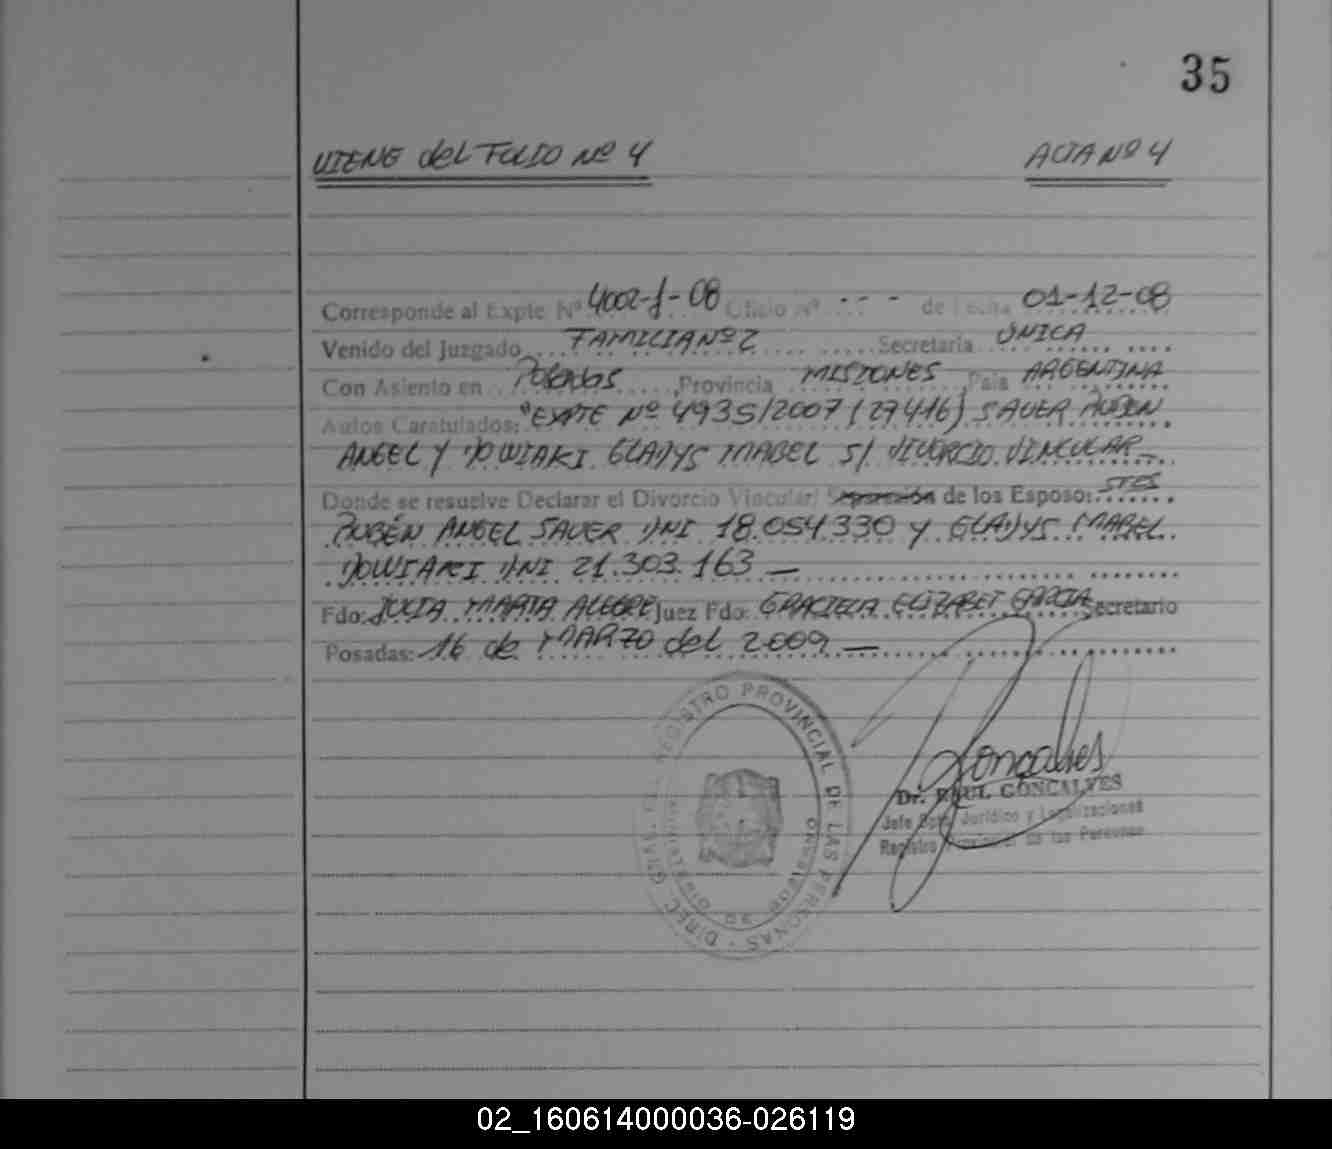 35
VIENE del FOLIO Nº 4 ACTA Nº 4
Corresponde al Expte Nº 4002-J-08 Oficio Nº - - - de Fecha 01-12-08
Venido del Juzgado FAMILIA Nº 2 Secretaria UNICA
Con Asiento en Posadas, Provincia MISIONES, Pais ARGENTINA
Autos Caratulados: "EXPTE Nº 4935/2007 (27416) SAUER RUBEN
ANGEL Y DOWIAKI GLADYS MABEL S/ DIVORCIO VINCULAR
Donde se resuelve Declarar el Divorcio Vincular/ Separación de los Esposo: STES
RUBÉN ANGEL SAUER DNI 18.054.330 y GLADYS MABEL
DOWIAKI DNI 21.303.163 —
Fdo: JULIA MARTA ALEGRE Juez Fdo: GRACIELA ELIZABET GARCIA Secretario
Posadas: 16 de MARZO del 2009 —
REGISTRO PROVINCIAL DE LAS PERSONAS - DIREC
Goncalves
Dr. RAUL GONCALVES
Jefe Dpto Jurídico y Legalizaciones
Registro Provincial de las Personas
02_160614000036-026119